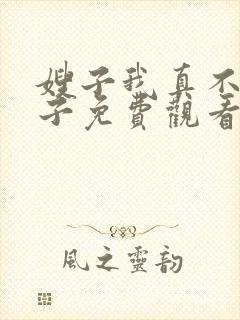 嫂子我真不
子免費觀看
風之靈韵